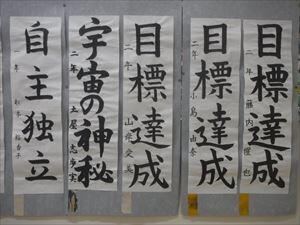 目標達成
二年 藤内
目標達成
二年 小島由季
目標達成
二年
宇宙の神秘
二年 土屋
自主独立
一年